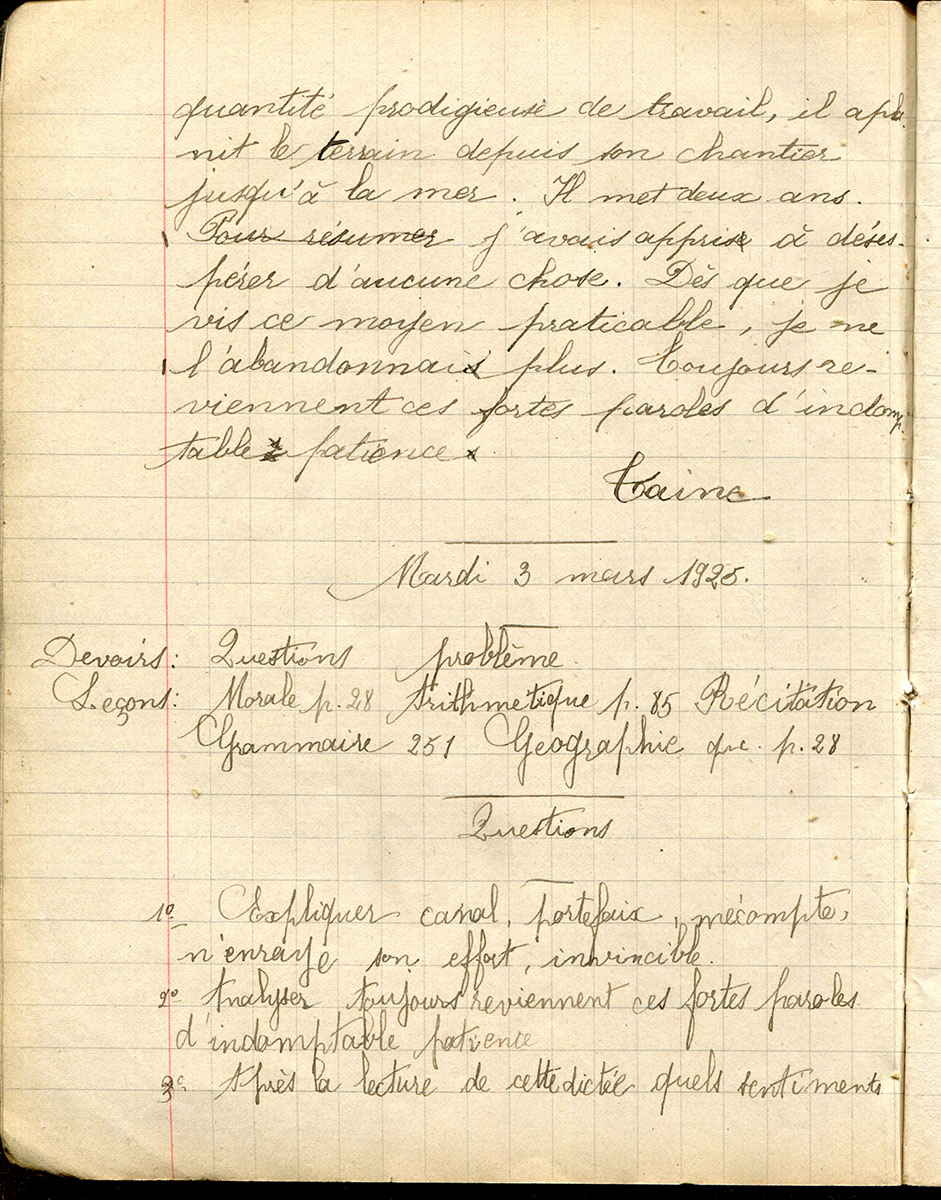 quantité prodigieuse de travail, il apla-
nit le terrain depuis son chantier
jusqu'à la mer. Il met deux ans.
Pour résumer j'avais appris à déses-
pérer d'aucune chose. Dès que je
vis ce moyen praticable, je ne
l'abandonnais plus. Toujours re-
viennent ces fortes paroles d'indomp-
table patience.
Taine
Mardi 3 mars 1925.
Devoirs: Questions problème.
Leçons: Morale p. 28 Arithmetique p. 85 Récitation
Grammaire 251 Géographie que. p. 28
Questions
1º Expliquer canal, portefaix, mécompte,
n'enraye son effort, invincible.
2º Analyser toujours reviennent ces fortes paroles
d'indomptable patience
3º Après la lecture de cette dictée quels sentiments